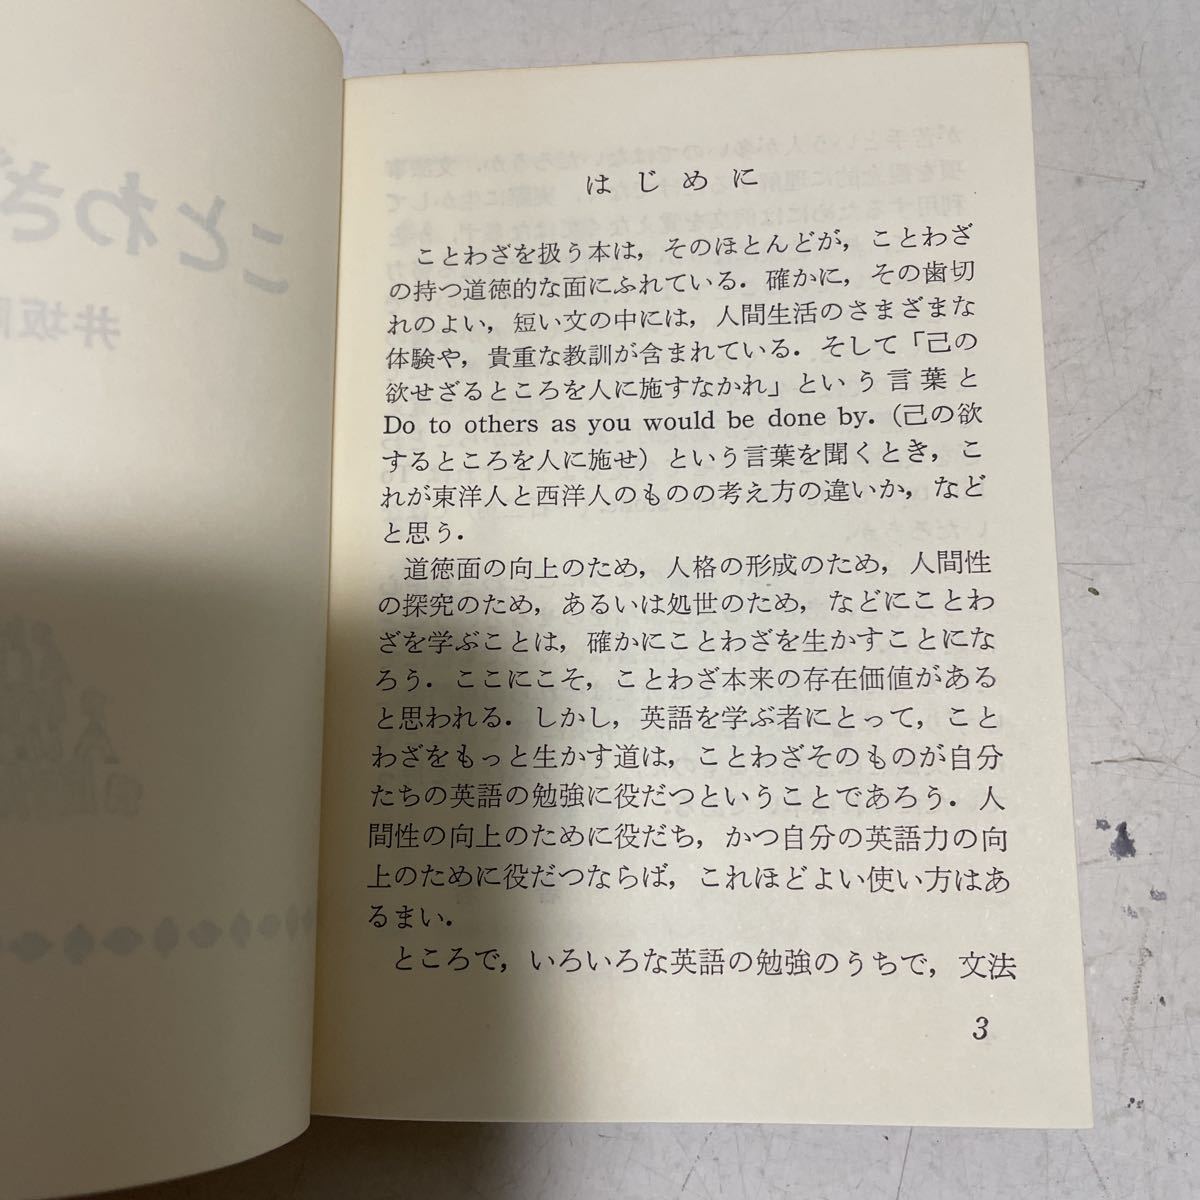 ことわざ
井坂
はじめに
ことわざを扱う本は，そのほとんどが，ことわざ
の持つ道徳的な面にふれている．確かに，その歯切
れのよい，短い文の中には，人間生活のさまざまな
体験や，貴重な教訓が含まれている．そして「己の
欲せざるところを人に施すなかれ」という言葉と
Do to others as you would be done by.（己の欲
するところを人に施せ）という言葉を聞くとき，こ
れが東洋人と西洋人のものの考え方の違いか，など
と思う．
道徳面の向上のため，人格の形成のため，人間性
の探究のため，あるいは処世のため，などにことわ
ざを学ぶことは，確かにことわざを生かすことにな
ろう．ここにこそ，ことわざ本来の存在価値がある
と思われる．しかし，英語を学ぶ者にとって，こと
わざをもっと生かす道は，ことわざそのものが自分
たちの英語の勉強に役だつということであろう．人
間性の向上のために役だち，かつ自分の英語力の向
上のために役だつならば，これほどよい使い方はあ
るまい．
ところで，いろいろな英語の勉強のうちで，文法
3